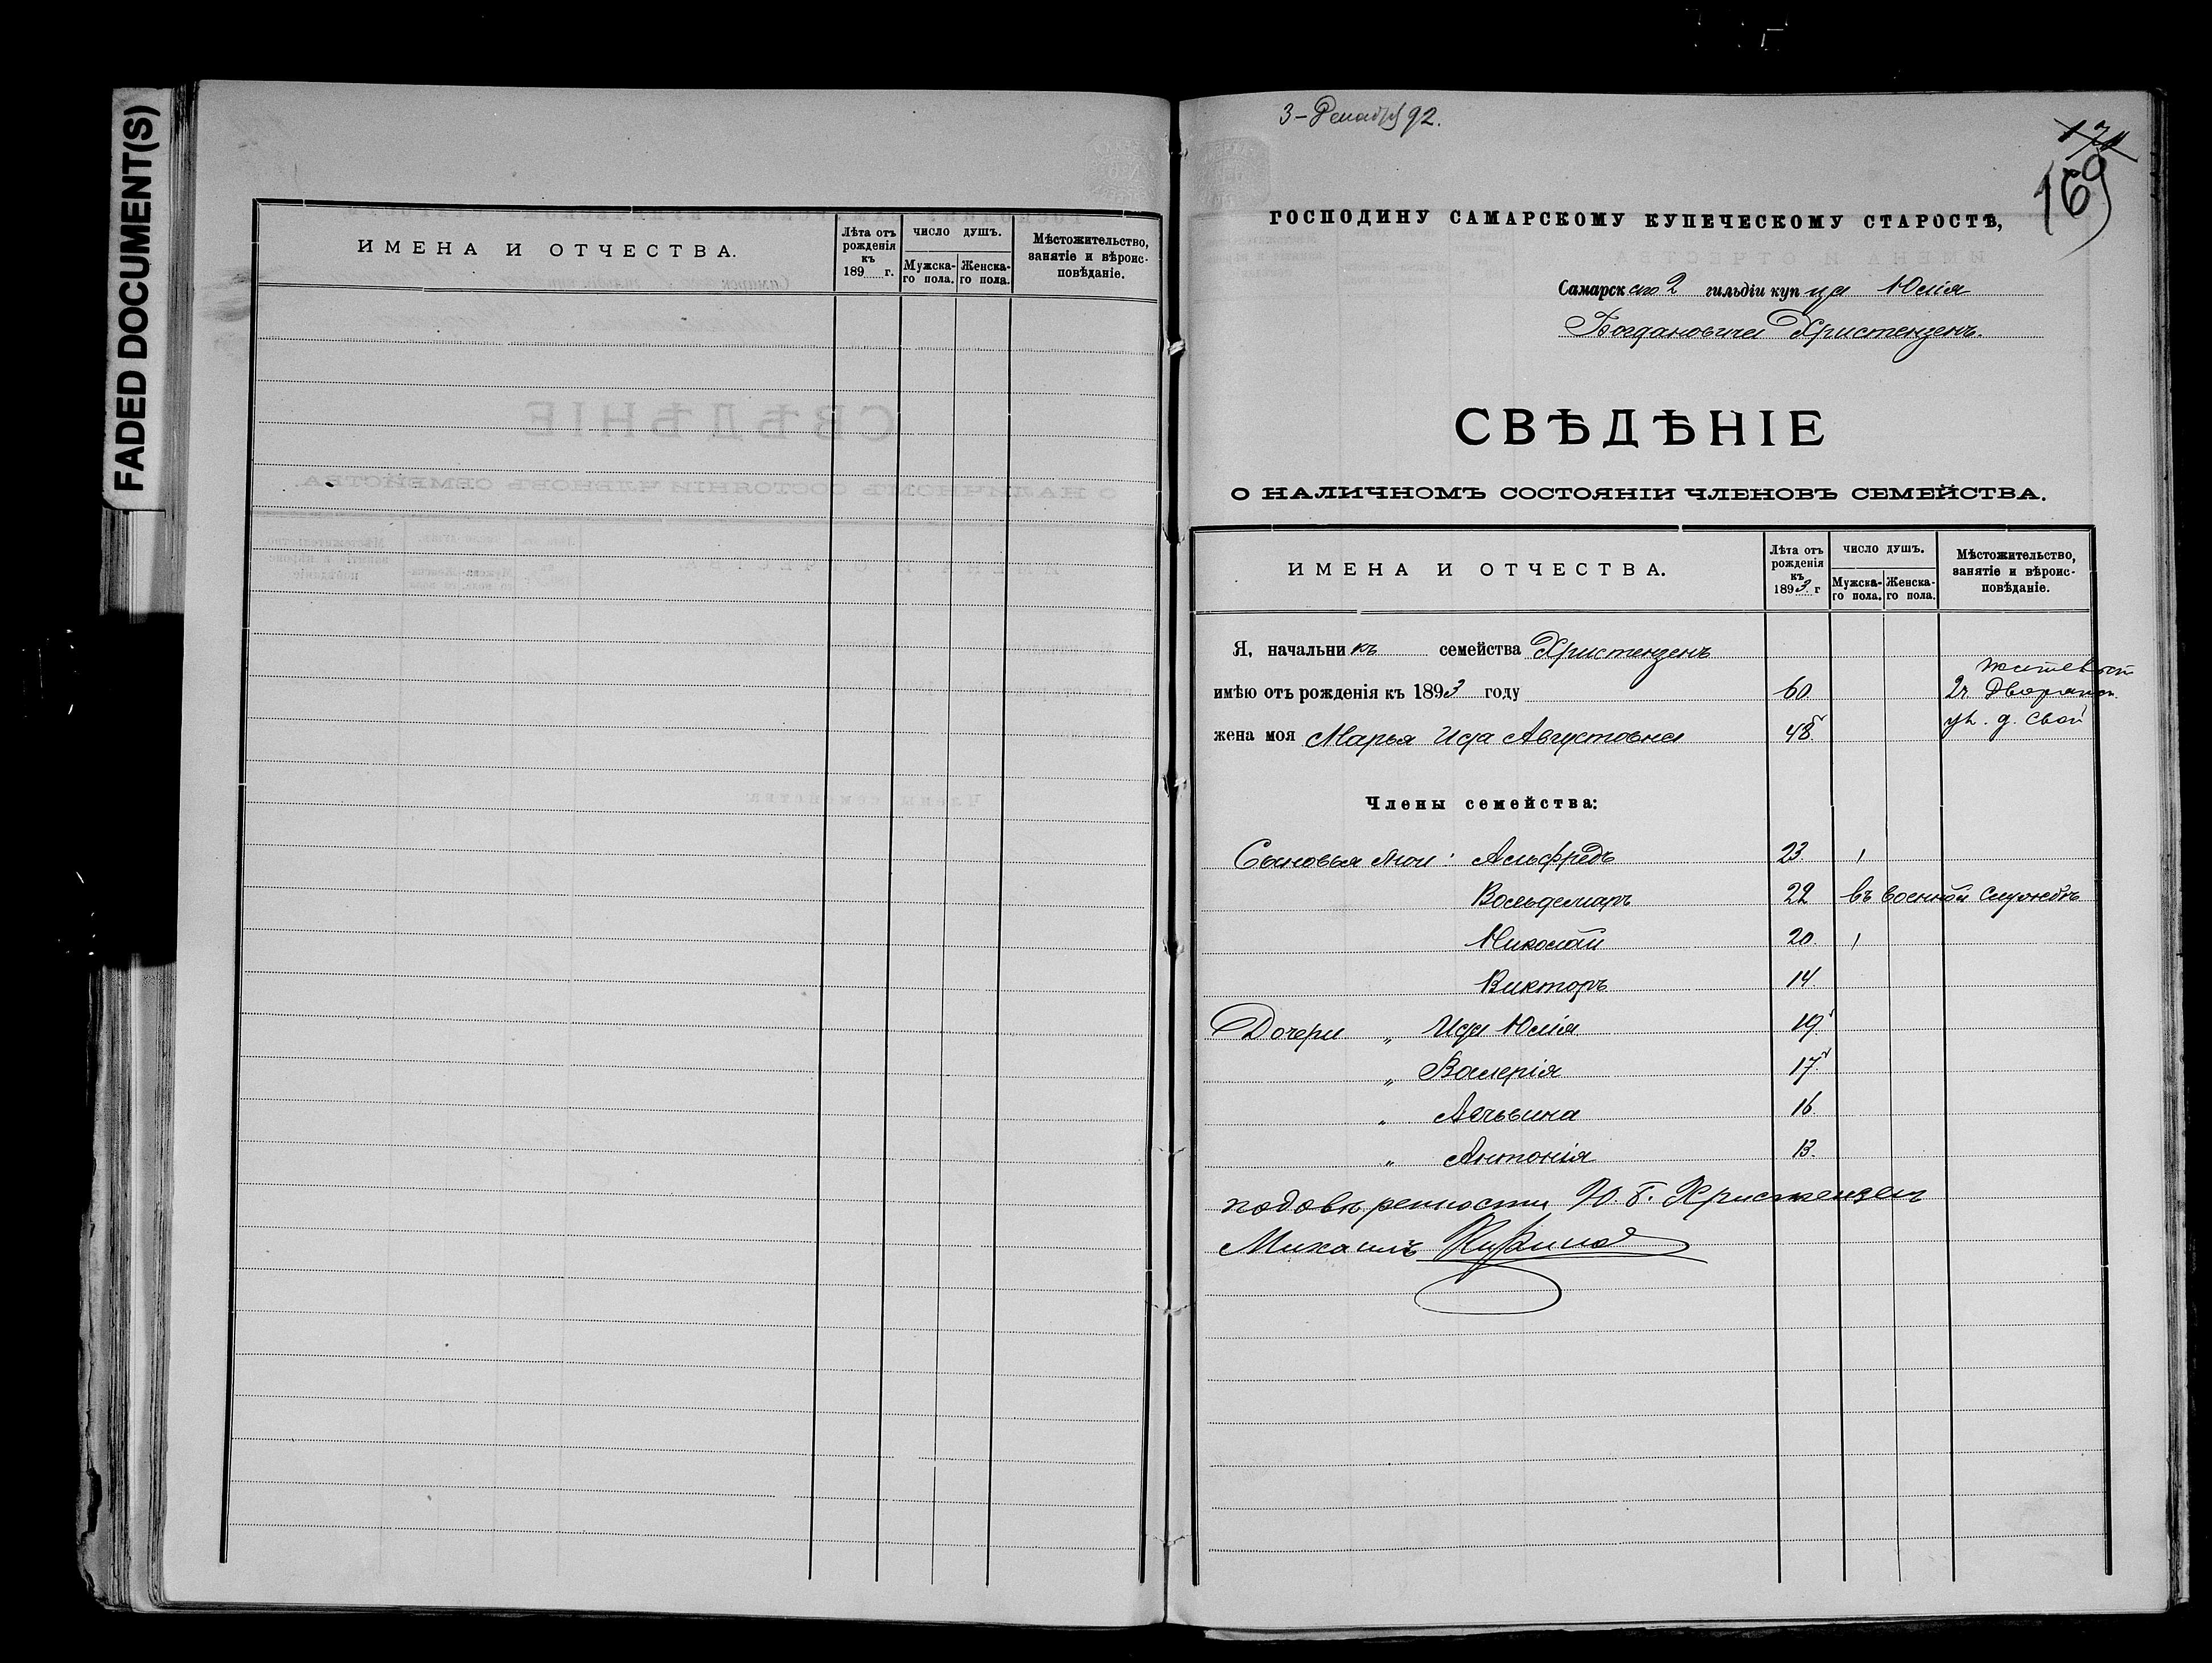 FADED DOCUMENT(S)
ИМЕНА И ОТЧЕСТВА.
Лѣта отъ рожденія къ 189 г.
число душъ.
Мужска-го пола.
Женска-го пола.
Мѣстожительство, занятіе и вѣроис-повѣданіе.
3 – Декабря 92.
171
169
ГОСПОДИНУ САМАРСКОМУ КУПЕЧЕСКОМУ СТАРОСТѢ,
Самарскаго 2 гильдіи купца Юлія
Богдановича Христензенъ.
СВѢДѢНІЕ
О НАЛИЧНОМЪ СОСТОЯНІИ ЧЛЕНОВЪ СЕМЕЙСТВА.
ИМЕНА И ОТЧЕСТВА.
Лѣта отъ рожденія къ 1893 г
число душъ.
Мужска-го пола.
Женска-го пола.
Мѣстожительство, занятіе и вѣроис-повѣданіе.
Я, начальникъ семейства Христензенъ
имѣю отъ рожденія къ 1893 году 60 2ч Дворянск.
жена моя Марья Ида Августовна 48 ул. д. свой
Члены семейства:
Сыновья мои: Альфредъ 23 1
Вольдемаръ 22 въ военной службѣ
Николай 20 1
Викторъ 14
Дочери „ Ида Юлія 19
„ Валерія 17
„ 16
„ Антонія 13.
подовѣренности Ю. Б. Христензенъ
Михаилъ